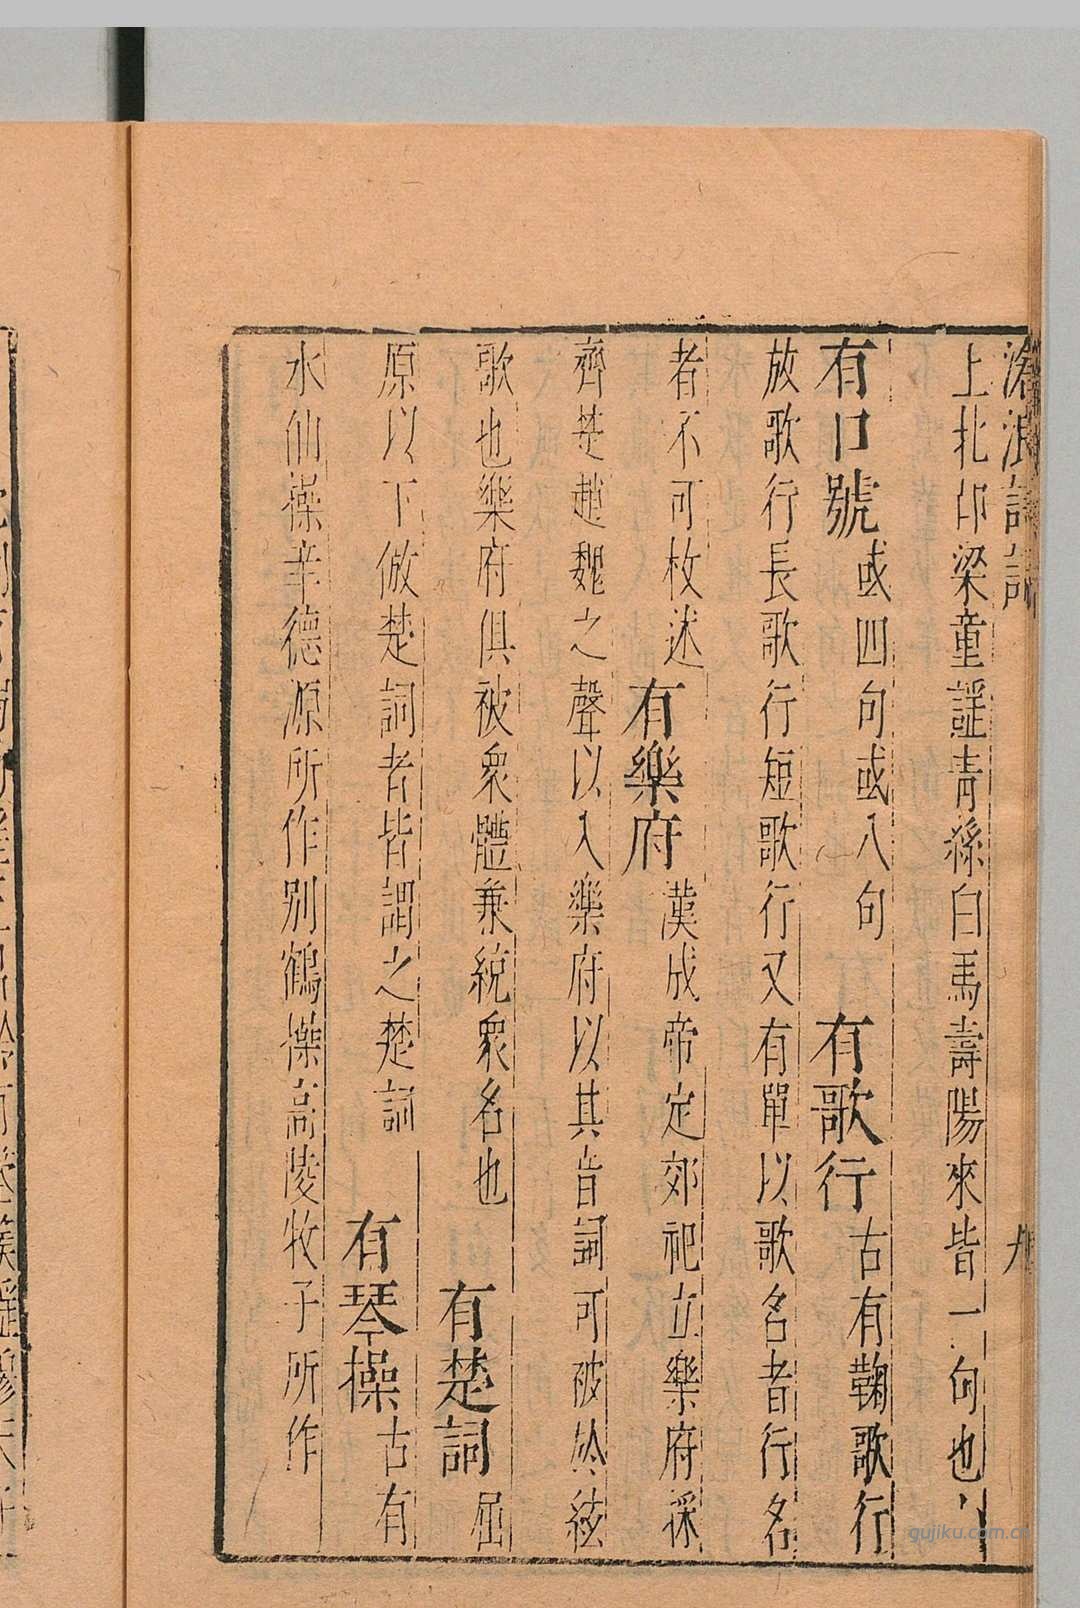 滄浪詩話
九
上北邙梁童謡青絲白馬壽陽來皆一句也
有口號或四句或八句 有歌行古有鞠歌行
放歌行長歌行短歌行又有單以歌名者行名
者不可枚述有樂府漢成帝定郊祀立樂府採
齊楚趙魏之聲以入樂府以其音詞可被於絃
歌也樂府俱被衆體兼統衆名也 有楚詞屈
原以下倣楚詞者皆謂之楚詞 有琴操古有
水仙操辛德源所作别鶴操高陵牧子所作
gujiku.com.cn